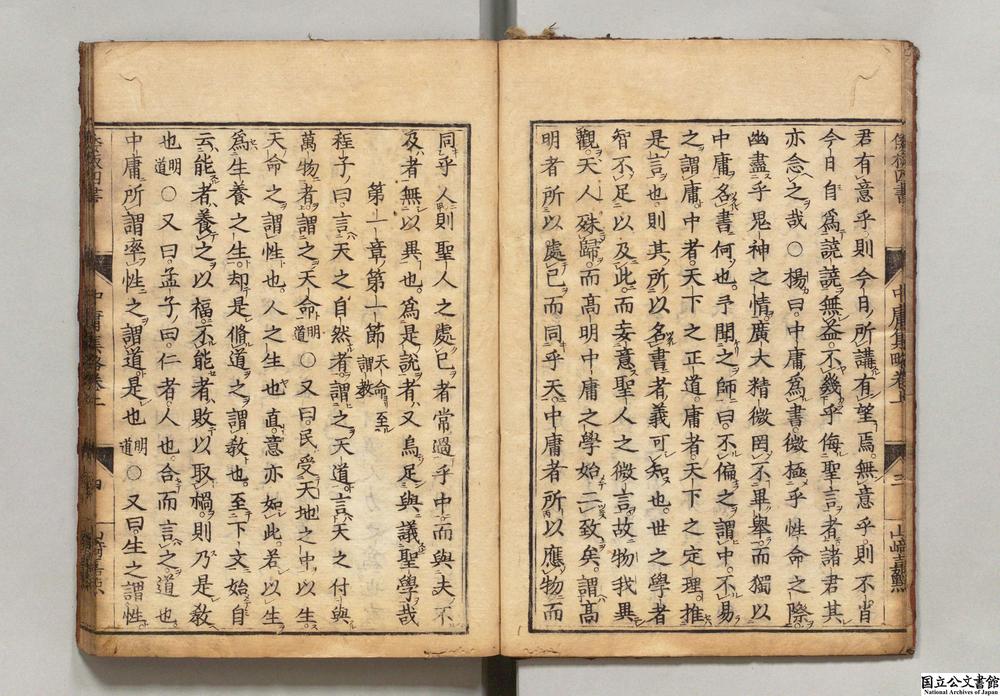 君有意乎則今日所講有望焉無意乎則不肖
今日自為譊譊無益不幾乎侮聖言者諸君其
亦念之哉○楊曰中庸為書微極乎性命之際
幽盡乎鬼神之情廣大精微罔不畢舉而獨以
中庸名書何也予聞之師曰不偏之謂中不易
之謂庸中者天下之正道庸者天下之定理推
是言也則其所以名書者義可知也世之學者
智不足以及此而妄意聖人之微言故物我異
觀天人殊歸而高明中庸之學始二致矣謂高
明者所以處己而同乎天中庸者所以應物而
同乎人則聖人之處己者常過乎中而與夫不
及者無以異也為是說者又烏足與議聖學哉
第一章第一節 天命至謂教
程子曰言天之自然者謂之天道言天之付與
萬物者謂之天命 明道 ○又曰民受天地之中以生
天命之謂性也人之生也直意亦如此若以生
為生養之生却是脩道之謂教也至下文始自
云能者養之以福不能者敗以取禍則乃是教
也 明道 ○又曰孟子曰仁者人也合而言之道也
中庸所謂率性之謂道是也 明道 ○又曰生之謂性
倭板四書
中庸集略卷上
三
山崎嘉點
四
国立公文書館
National Archives of Japan